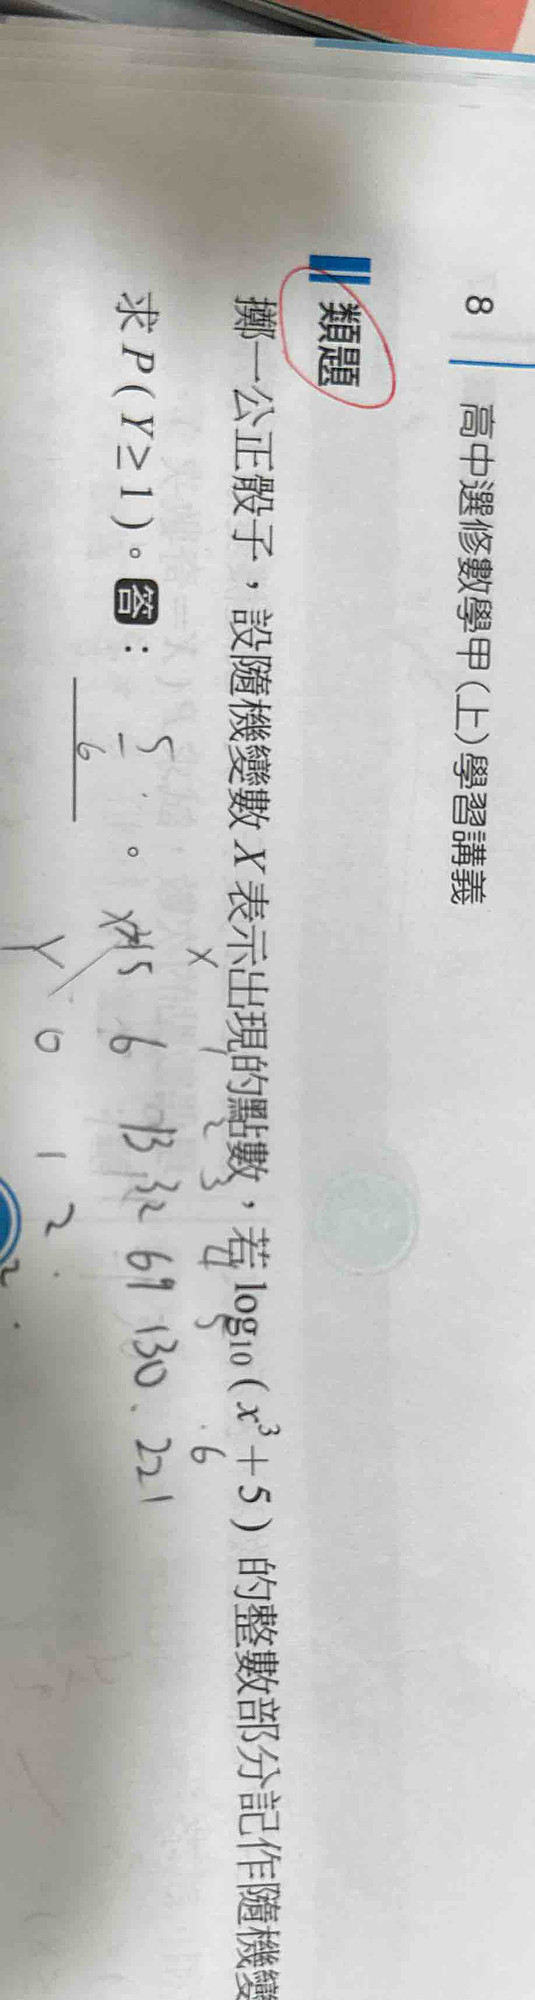 8 高中選修數學甲(上)學習講義
類題
擲一公正骰子，設隨機變數 X 表示出現的點數，若 log₁₀(x³+5) 的整數部分記作隨機變
求 P(Y≥1)。答：5/6。
X 1 2 3 4 5 6
6 13 32 69 130 221
Y 0 1 2
2